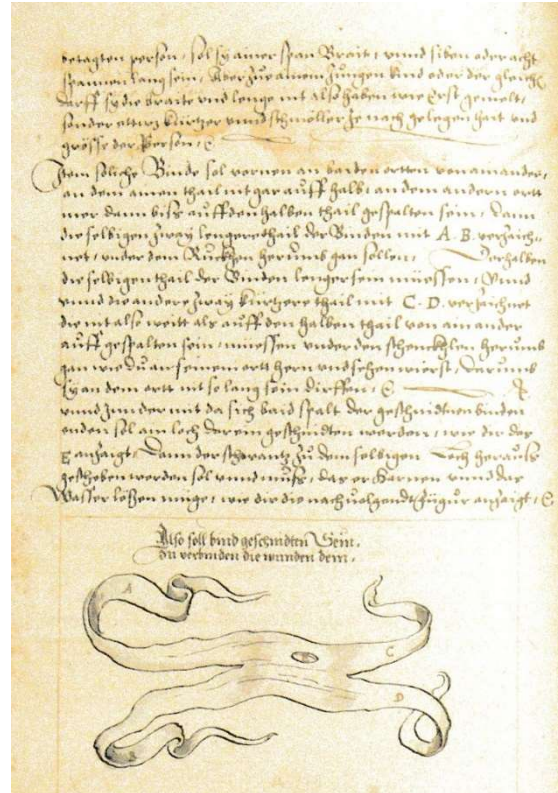 betagten person, sol sy ainer span Brait, vnnd siben oder acht
spannen lang sein, Aber zue ainem Jungen kind oder der gleich
darff sy die braite vnd lenge nit also haben wie erst gemelt,
sonder ettwz kürtzer vnnd schmöller Je nach gelegenhait vnd
grösse der Person,
Jtem soliche Binde sol vornen an baiden ortten von ainander,
an dem ainen thail nit gar auff halb, an dem andern ortt
mer dann bisz auff den halben thail gespalten sein, dann
die selbigen zway lengere thail der Binden mit A. B. verzaich-
net, vnder dem Ruckhen herumb gan sollen, Derhalben
die selbigen thail der Binden lenger sein müessen, Vnnd
vnnd die andere zway kürtzere thail mit C. D. verzaichnet
die nit also weitt als auff den halben thail von ainander
auff gespalten sein, müessen vnder den schenckhlen herumb
gan wie du an seinem ort hern vnd sehen wirst, darumb
sy an dem ortt nit so lang sein dirffen,
vnnd Jn der mit da sich baid spalt der geschnidtnen binden
enden sol ain loch darein geschnidten werden, wie dir das
E anzaigt, Dann der schwantz zu dem selbigen Loch herausz
geschoben werden sol vnnd musz, das er Harnen vnnd das
Wasser lösen müge, wie dir die nachuolgendt Figur anzaigt,
Also soll bind geschnidten Sein,
Zu verbinden die wunden dein,
A
B
C
D